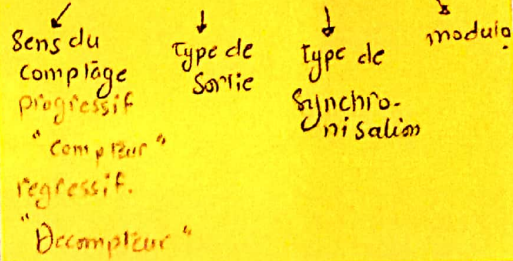 Sens du
Comptage
progressif
"Compteur"
regressif.
"Decompteur"
Type de
Sortie
type de
Synchro-
nisation
modulo